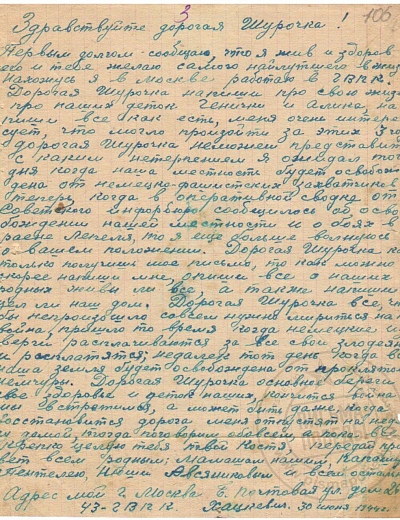 3
106
Здравствуйте дорогая Шурочка!
Первым долгом сообщаю, что я жив и здоров
его и тебе желаю самого наилучшего в жиз
нахожусь я в Москве работаю в ГВРК.
Дорогая Шурочка напиши про свою жизн
про наших деток Генички и Алика, на
пиши все как есть, меня очень интере
сует, что могло произойти за этих 3 го
дорогая Шурочка неможеш представит
с каким нетерпением я ожидал того
дня когда наша местность будет освобож
дена от немецко-фашистских захватчиков
теперь когда в оперативной сводке от
Советского Информбюро сообщилось об осво
бождении нашей местности и о боях в
районе Лепеля, то я еще больше волнуюсь
о вашем положении. Дорогая Шурочка ка
только получиш мое письмо, то как можно
скорее напиши мне, опиши все о наших
родных живы ли все, а также напиши
цел ли наш дом. Дорогая Шурочка все, что
бы непроизошло совсем нужно мириться на
война, пришло то время когда немецкие из
верги расплачиваются за все свои злодеян
и расплатятся; недалек тот день когда вся
наша земля будет освобождена от проклятой
немчуры. Дорогая Шурочка основное береги
свое здоровье и деток наших, кончится война
мы встретимся, а может быть даже, когда
восстановится дорога меня отпустят на неде
лю домой, тогда поговорим обовсем, а пока
крепко целую тебя твой Костя, передай при
вет всем родным; Мамашам нашим,
Авсянниковым и всем осталь
Адрес мой г. Москва Б. Почтовая ул. дом
43-ГВРК. Хацкевич. 30 июня 1944 г.